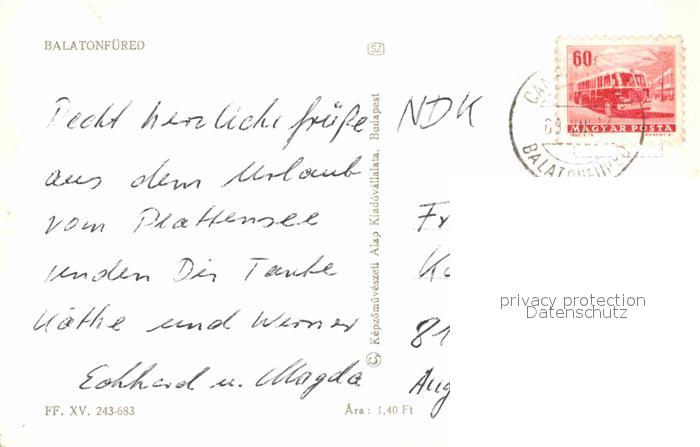 BALATONFÜRED
SZ
60f
MAGYAR POSTA
69 VIII
BALATONFÜRED
Recht herzliche Grüße
aus dem Urlaub
vom Plattensee
senden Dir Tante
Käthe und Werner
Eckhard u. Magda
FF. XV. 243-683
Ára : 1,40 Ft
© Képzőművészeti Alap Kiadóvállalata, Budapest
NDK
Fr
81
Aug
privacy protection
Datenschutz